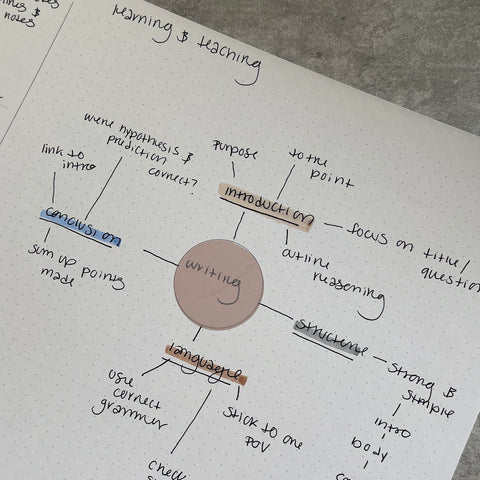 notes
learning & teaching
were hypothesis &
prediction
correct?
link to
intro
conclusion
sum up points
made
purpose
to the
point
introduction
focus on title/
question
outline
reasoning
writing
structure
strong &
simple
intro
body
language
use
correct
grammer
stick to one
POV
check